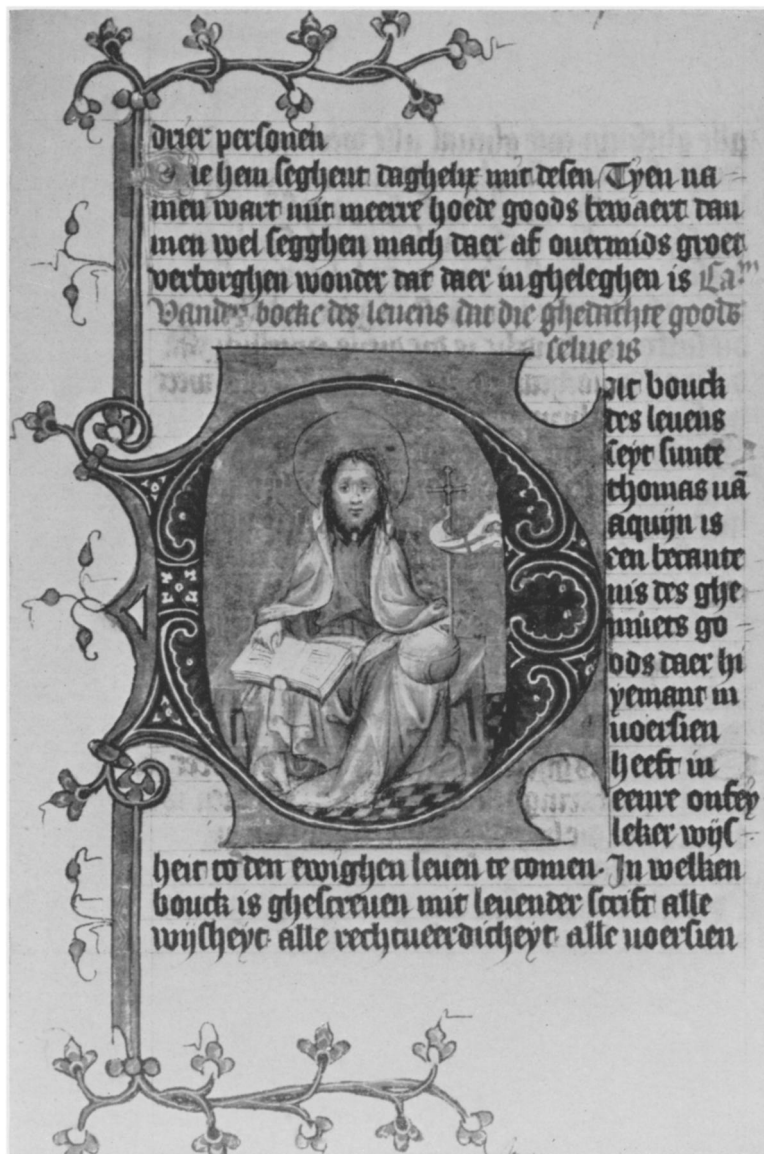 drier personen
Die hem seghent daghelix mit desen Tyen na
men wart mit meerre hoede goods bewaert dan
men wel segghen mach daer af ouermids groet
verborghen wonder dat daer in gheleghen is Cam
Vanden bocke des leuens dat die ghedachte goods
selue is
Dit bouck
des leuens
seyt sunte
thomas uā
aquijn is
een becante
nis des ghe
müets go
ods daer hi
yemant in
uoersien
heeft in
eenre onfey
leker wijs
heit to den ewighen leuen te comen. In welken
bouck is ghescreuen mit leuender scrift alle
wijsheyt alle rechtueerdicheyt alle uoersien